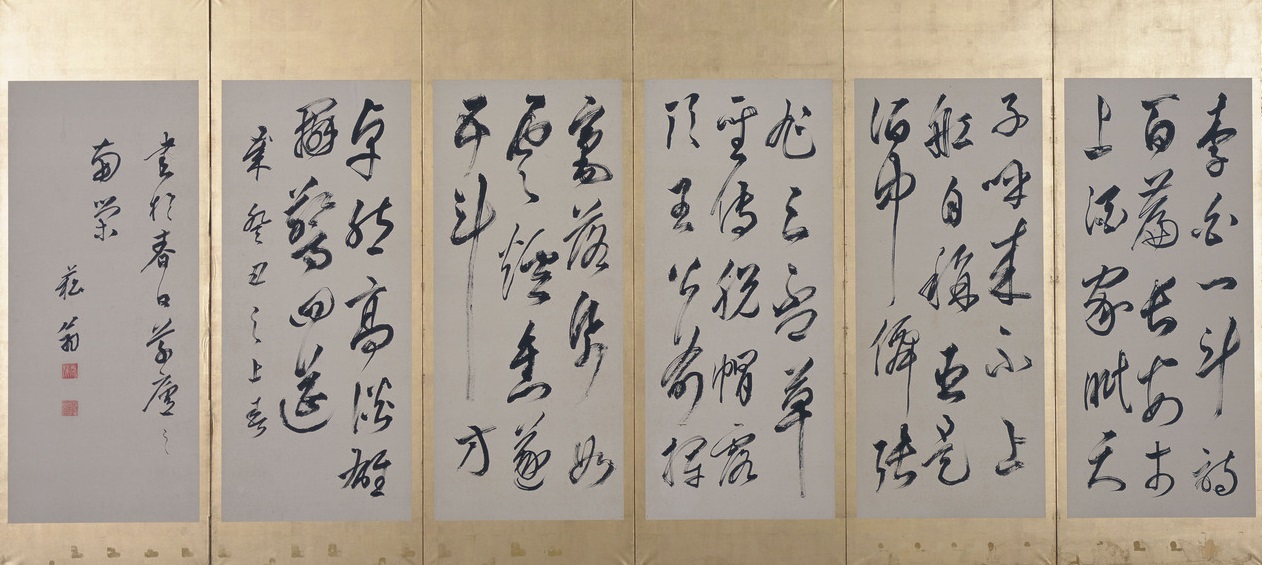 李白一斗詩
百篇長安市
上酒家眠天
子呼来不上
船自稱臣是
酒中僊張
旭三盃草
聖傳脱帽露
頂王公前揮
毫落紙如
雲煙焦遂
五斗方
卓然高談雄
辯驚四筵
癸丑之上春
書於春日草廬之
南榮
菘翁